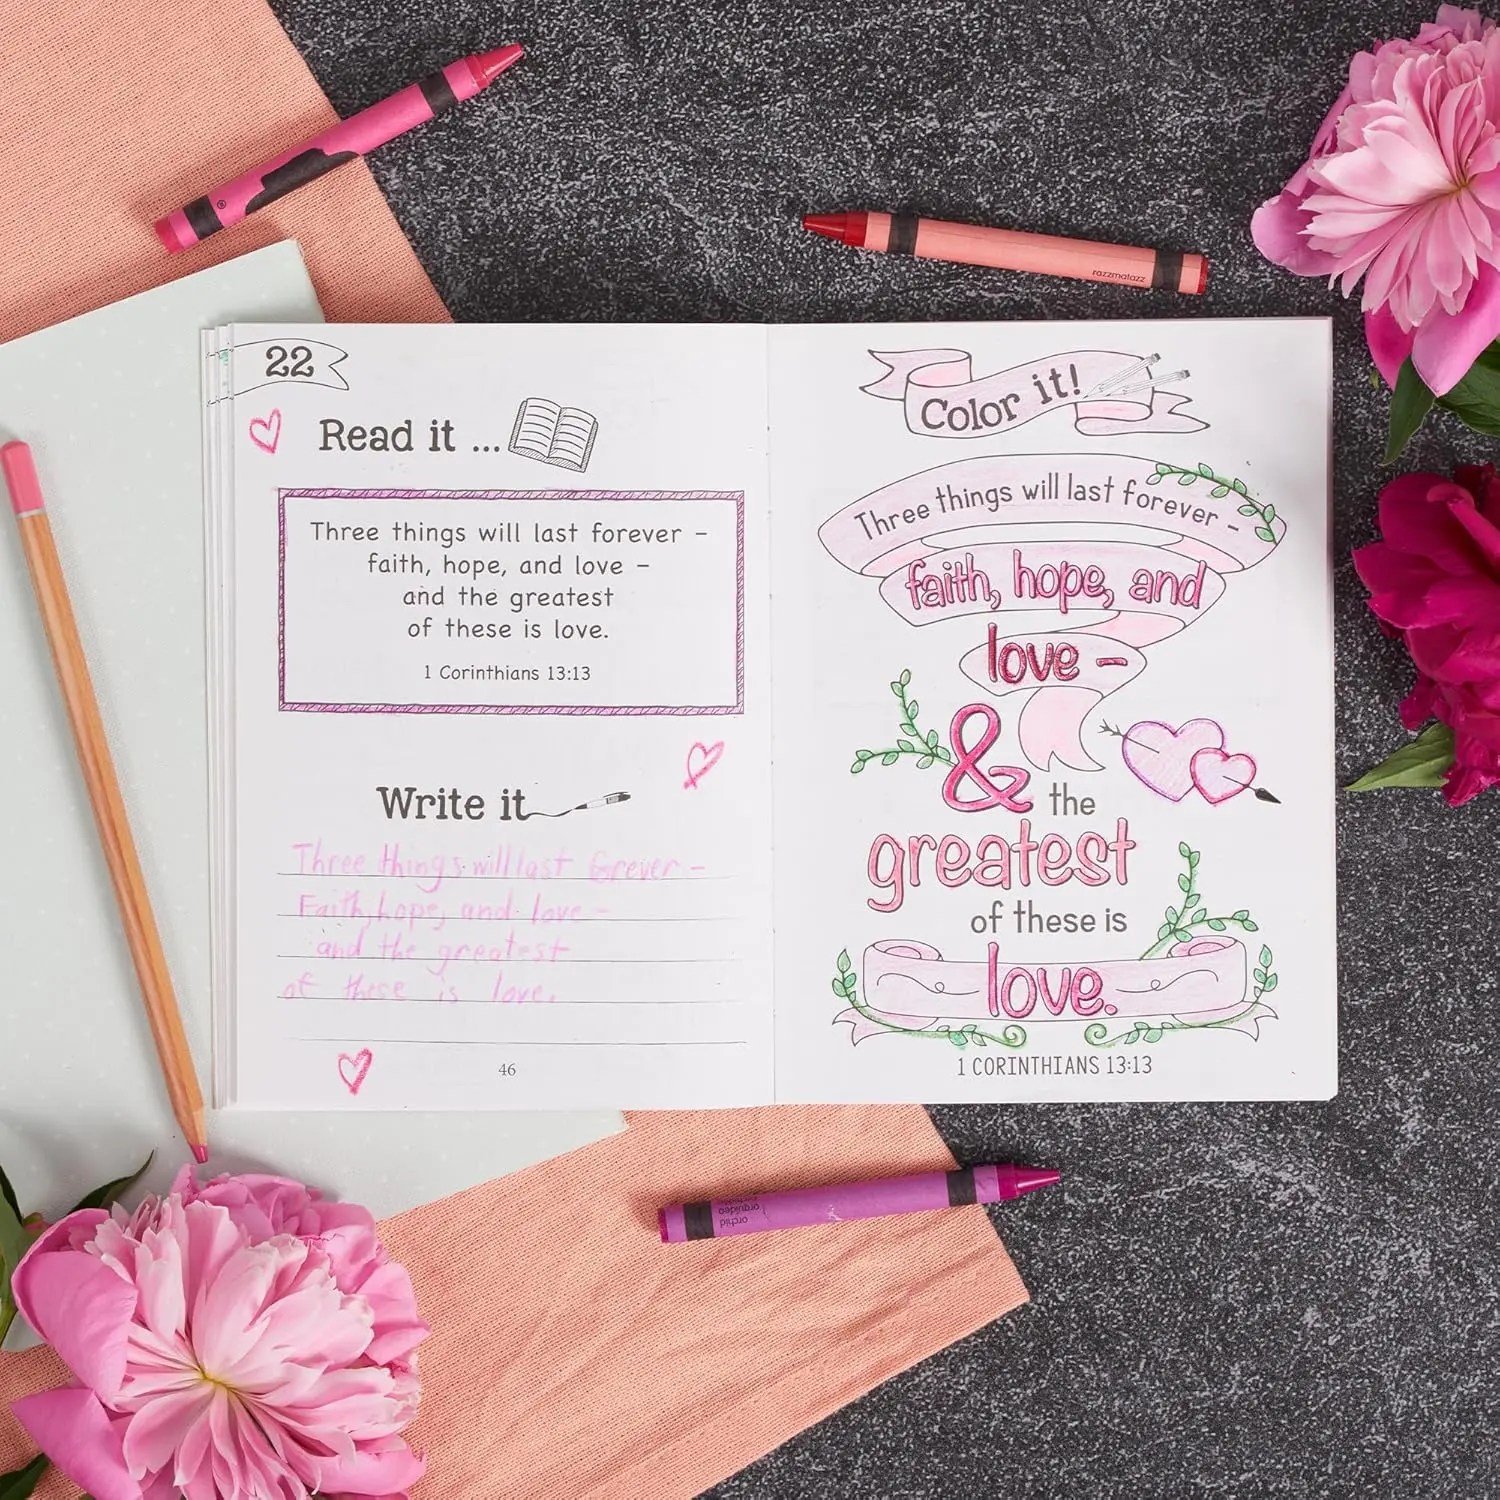 razzmatazz
22
Read it ...
Three things will last forever –
faith, hope, and love –
and the greatest
of these is love.
1 Corinthians 13:13
Write it
Three things will last forever –
Faith, hope, and love –
and the greatest
of these is love.
46
Color it!
Three things will last forever –
faith, hope, and
love –
& the
greatest
of these is
love.
1 CORINTHIANS 13:13
orchid
orquídea